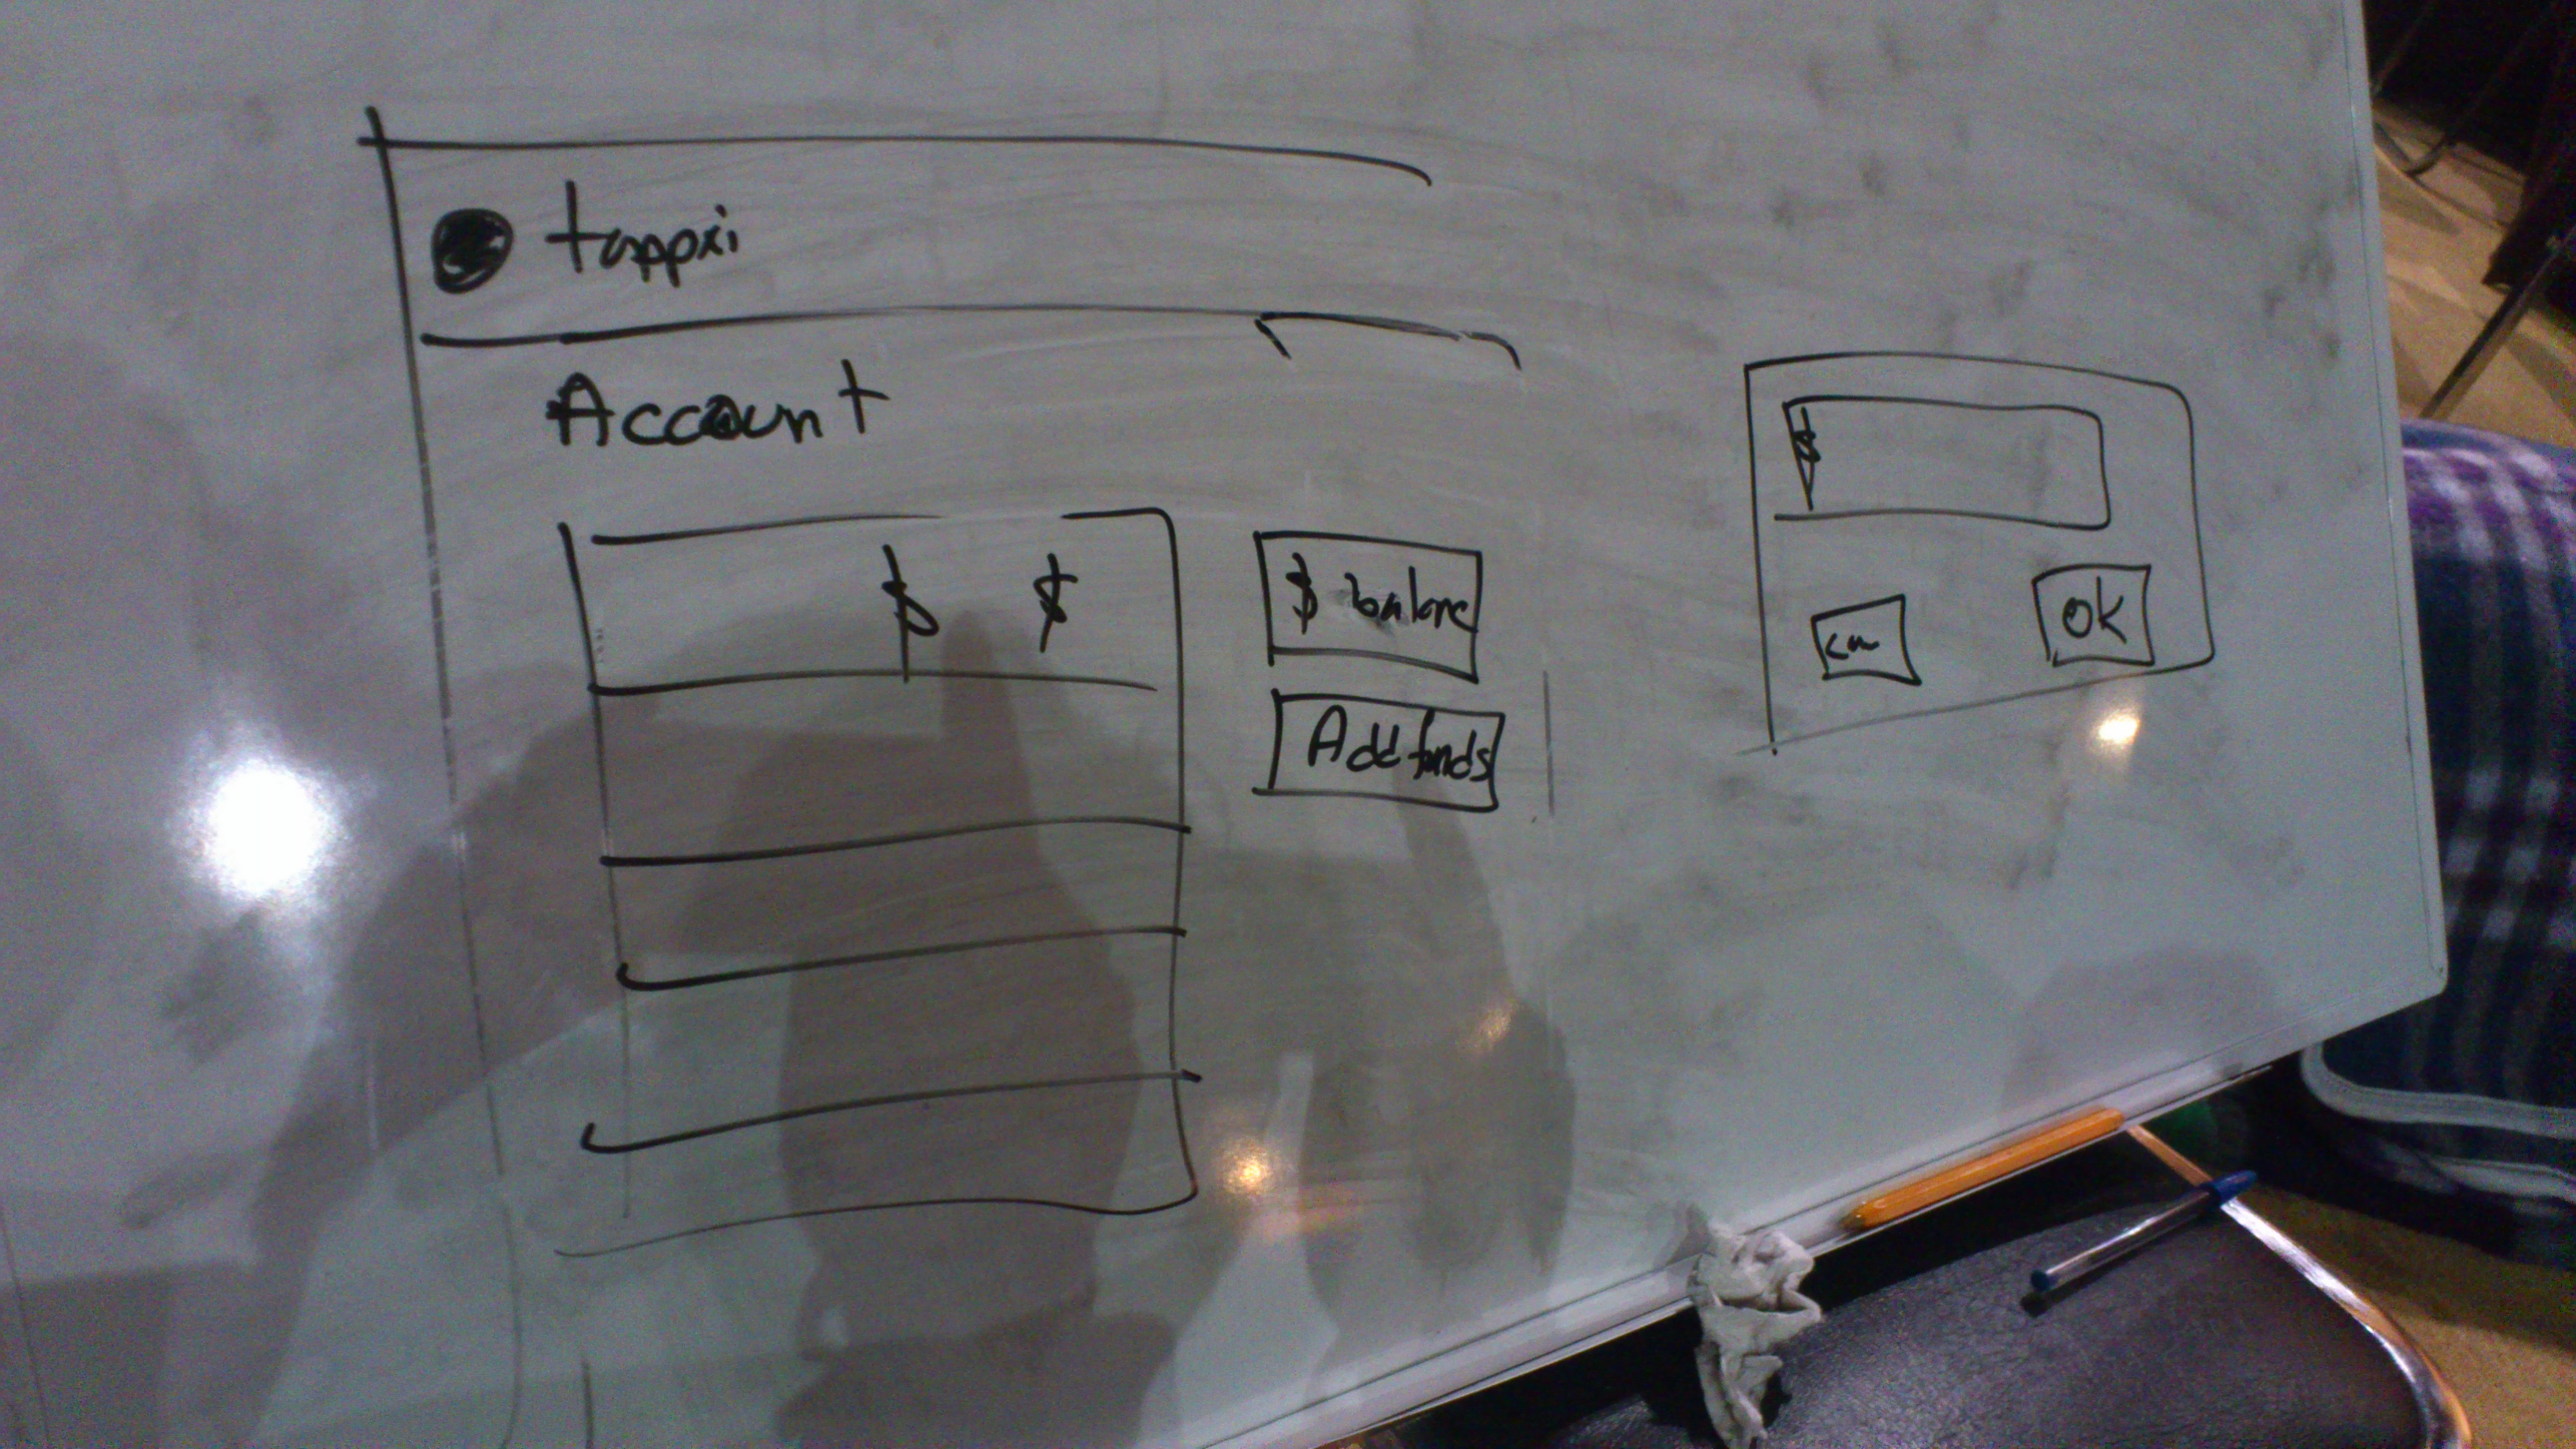 tappxi
Account
$ $
$ balanc
Add funds
$
can
OK